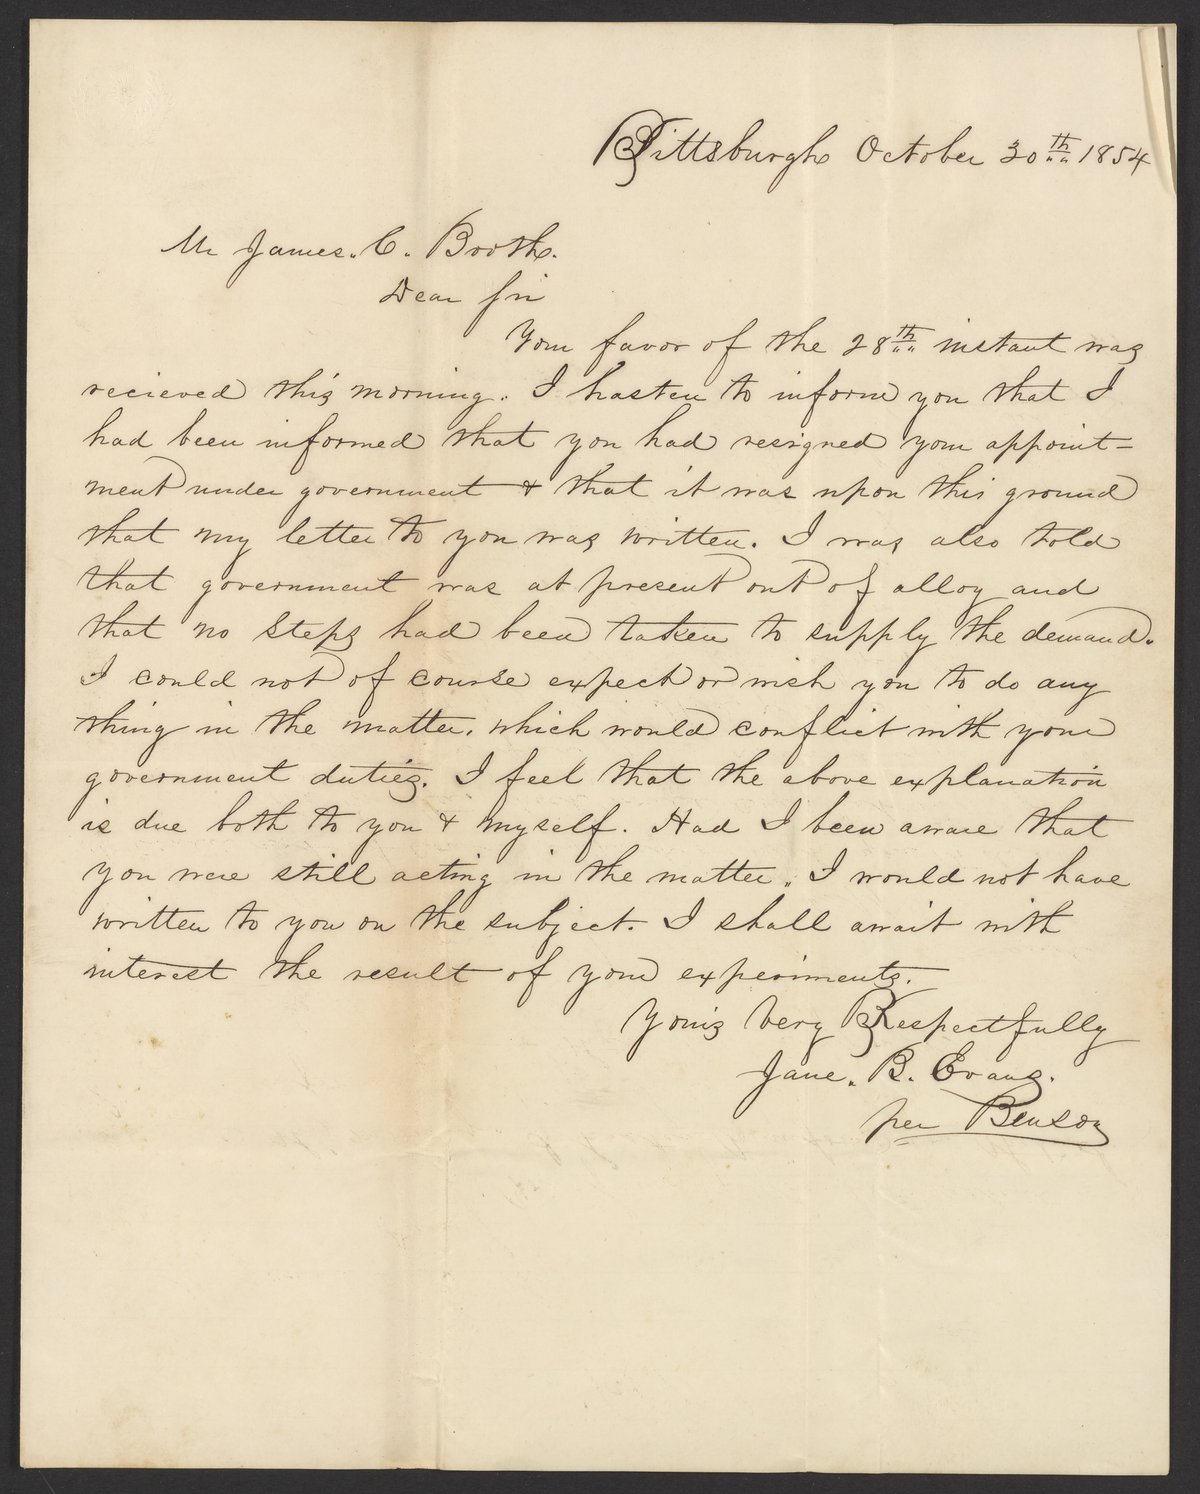 Pittsburgh October 30th 1854
Mr James. C. Booth.
Dear Sir
Your favor of the 28th instant was
recieved this morning. I hasten to inform you that I
had been informed that you had resigned your appoint-
ment under government & that it was upon this ground
that my letter to you was written. I was also told
that government was at present out of alloy and
that no steps had been taken to supply the demand.
I could not of course expect or wish you to do any
thing in the matter, which would conflict with your
government duties. I feel that the above explanation
is due both to you & myself. Had I been aware that
you were still acting in the matter, I would not have
written to you on the subject. I shall await with
interest the result of your experiments.
Your's Very Respectfully
Jane. B. Evans.
per Benson